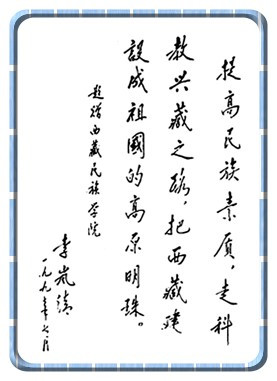 提高民族素质，走科
教兴藏之路，把西藏建
設成祖國的高原明珠。
题赠西藏民族学院
李岚清
一九九 年七月